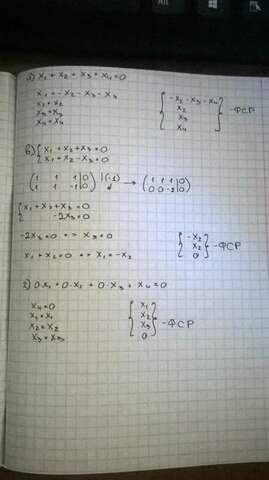 а) x₁ + x₂ + x₃ + x₄ = 0
x₁ = -x₂ - x₃ - x₄
x₂ = x₂
x₃ = x₃
x₄ = x₄
{ -x₂ - x₃ - x₄
x₂
x₃
x₄ } - ФСР
в) { x₁ + x₂ + x₃ = 0
x₁ + x₂ - x₃ = 0
( 1 1 1 | 0
1 1 -1 | 0 ) | (-1) → ( 1 1 1 | 0
0 0 -2 | 0 )
{ x₁ + x₂ + x₃ = 0
-2x₃ = 0
-2x₃ = 0 => x₃ = 0
x₁ + x₂ = 0 => x₁ = -x₂
{ -x₂
x₂
0 } - ФСР
г) 0·x₁ + 0·x₂ + 0·x₃ + x₄ = 0
x₄ = 0
x₁ = x₁
x₂ = x₂
x₃ = x₃
{ x₁
x₂
x₃
0 } - ФСР